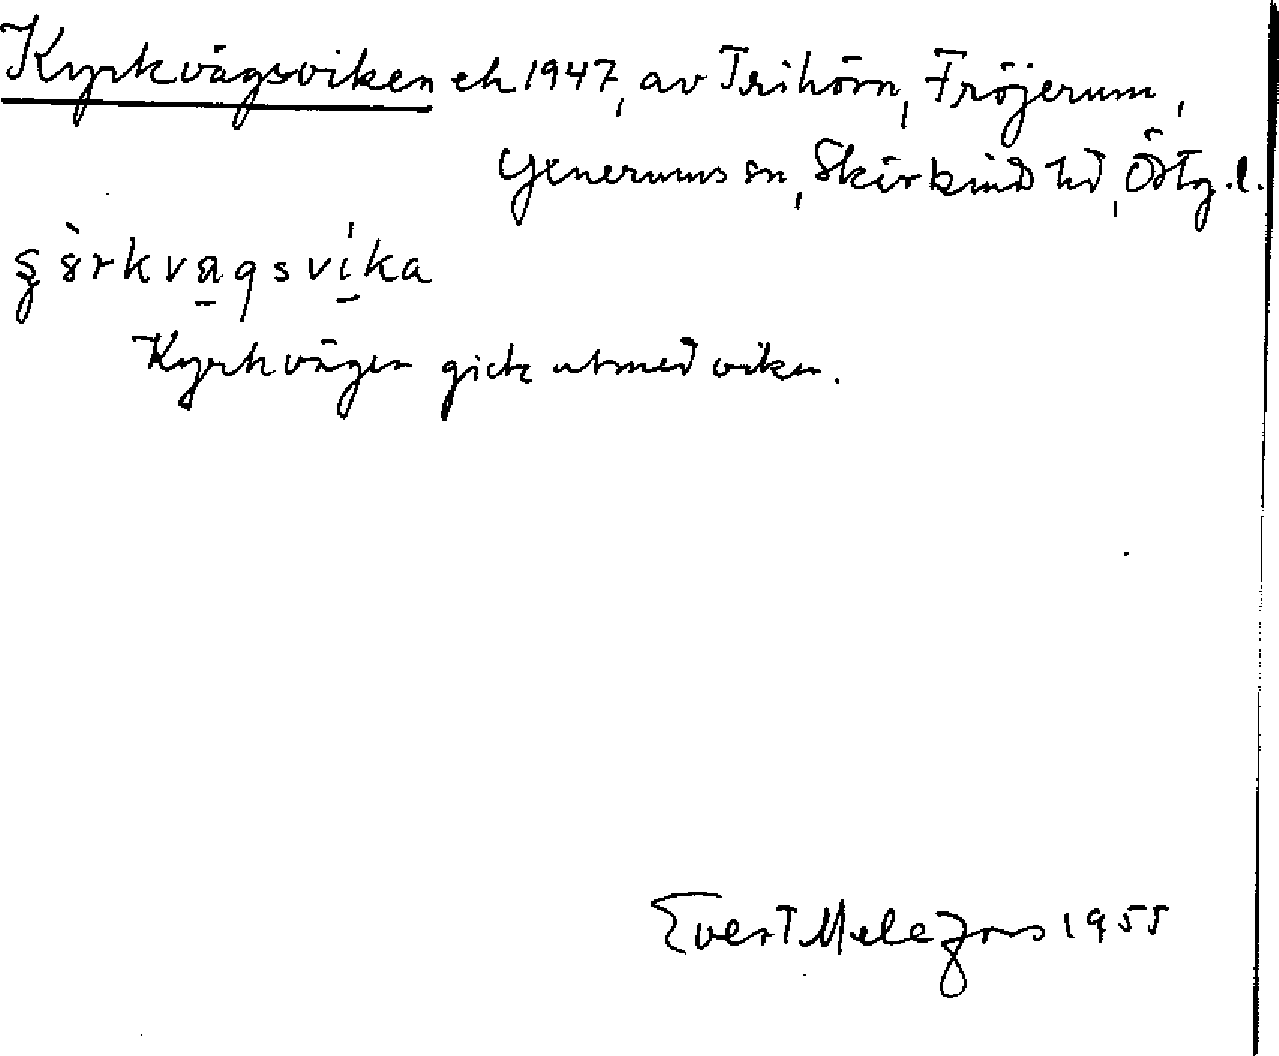 Kyrkvägsviken ek 1947, av Trihörn, Fröjerum,
Yxnerums sn, Skärkind hd, Östg. l.
Kyrkvägen gick utmed viken.
Evert Melefors 1955